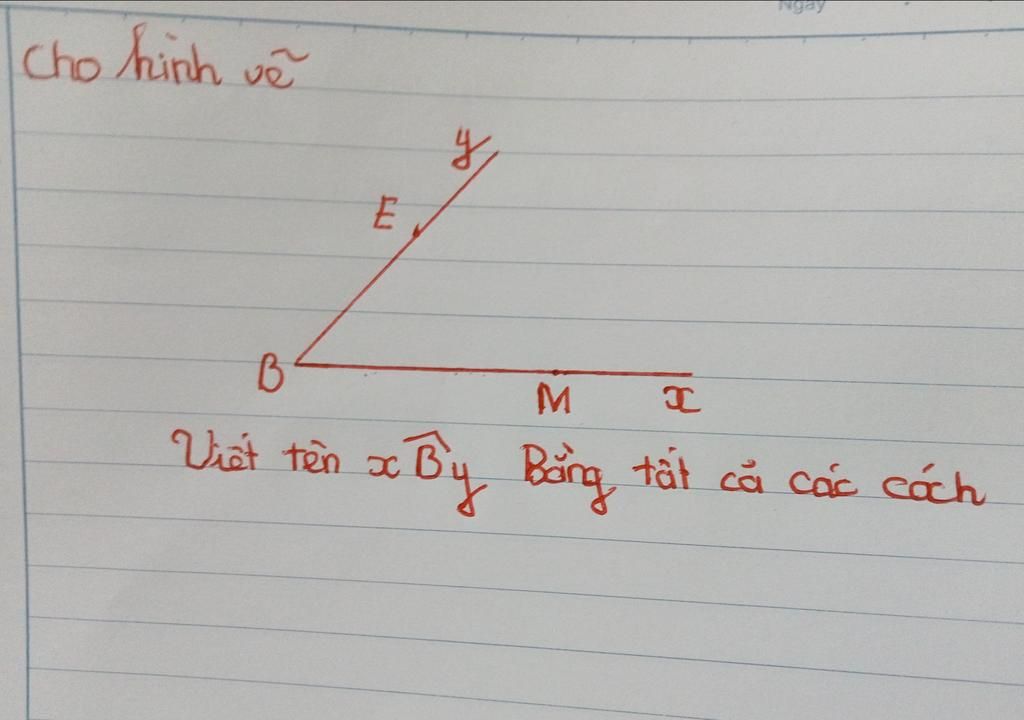 Ngày
Cho hình vẽ
y
E
B
M x
Viết tên xB̂y Bằng tất cả các cách